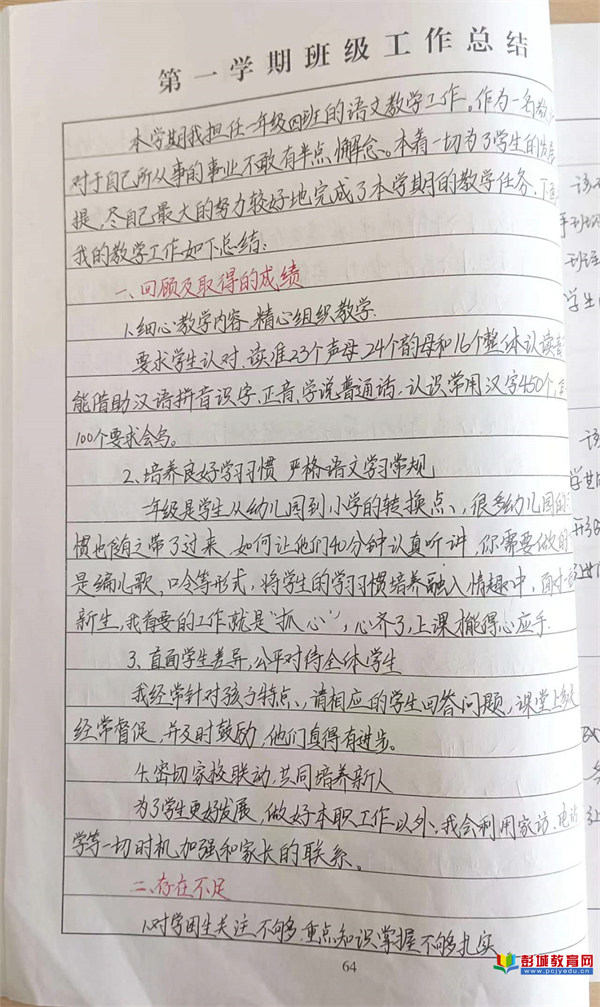 第一学期班级工作总结
本学期我担任一年级四班的语文教学工作。作为一名教
对于自己所从事的事业不敢有半点懈怠。本着一切为了学生的发展
提,尽自己最大的努力较好地完成了本学期的教学任务、下面
我的教学工作如下总结:
一、回顾及取得的成绩
1.细心教学内容、精心组织教学.
要求学生认对、读准23个声母、24个韵母和16个整体认读音
能借助汉语拼音识字、正音、学说普通话、认识常用汉字450个,
100个要求会写。
2、培养良好学习习惯 严格语文学习常规
一年级是学生从幼儿园到小学的转换点、很多幼儿园的
惯也随之带了过来、如何让他们40分钟认真听讲,你需要做的
是编儿歌、口令等形式,将学生的学习习惯培养融入情趣中,面对
新生,我首要的工作就是“抓心”,心齐了,上课才能得心应手.
3、直面学生差异,公平对待全体学生
我经常针对孩子特点、请相应的学生回答问题,课堂上多次
经常督促,并及时鼓励,他们真得有进步。
4.密切家校联动、共同培养新人
为了学生更好发展,做好本职工作以外、我会利用家访、电话
学等一切时机加强和家长的联系。
二、存在不足
1.对学困生关注不够,重点知识掌握不够扎实
64
该
班级
班主
学生
该
学生
彭城教育网
www.pcjyedu.cn